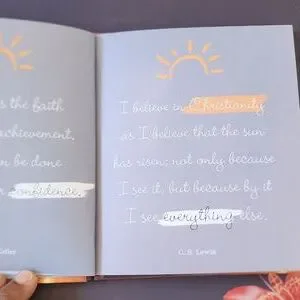 s the faith
achievement.
n be done
confidence.
Keller
I believe in Christianity
as I believe that the sun
has risen; not only because
I see it, but because by it
I see everything else.
C. S. Lewis